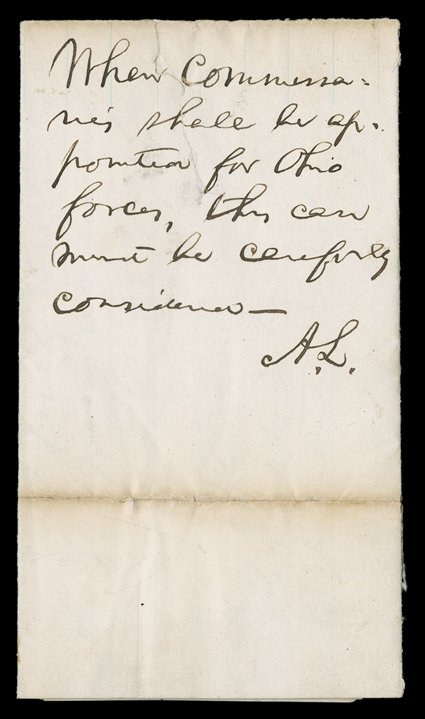 When Commissa-
ries shall be ap-
pointed for Ohio
forces, this case
must be carefully
considered—
A.L.